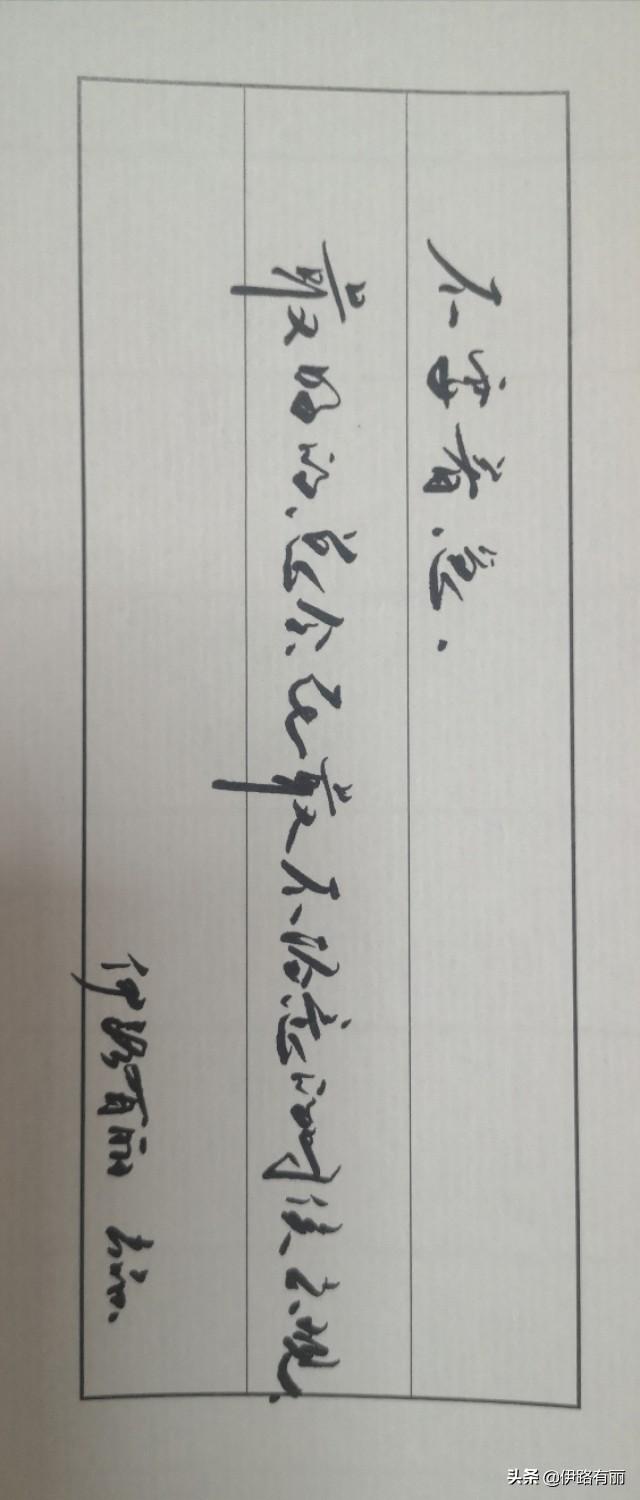 不要着急.
最好的,总会在最不经意的时候出现.
伊路有丽
头条 @伊路有丽